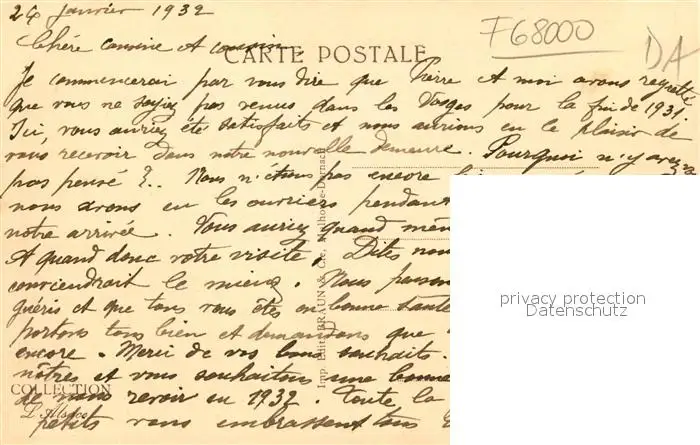 24 janvier 1932
F68000
DA
Chère cousine et cousin.
CARTE POSTALE
Je commencerai par vous dire que Pierre et moi avons regretté
que vous ne soyiez pas venus dans les Vosges pour la fin de 1931.
Ici, vous auriez été satisfaits et nous aurions eu le plaisir de
vous recevoir dans notre nouvelle demeure. Pourquoi n'y avez
pas pensé ?.. Nous n'étions pas encore
nous avons eu les ouvriers pendant
notre arrivée. Vous auriez quand même
A quand donc votre visite, Dites nous
conviendrait le mieux. Nous pensons
guéris et que tous vous êtes en bonne santé
portons tous bien et demandons que
encore. Merci de vos bons souhaits.
nôtres et vous souhaitons une bonne
de nous revoir en 1932. Toute la
petits vous embrassent tous
COLLECTION
L'Alsace
Imp. Edit. BRAUN & Cie, Mulhouse-Dornach
privacy protection
Datenschutz